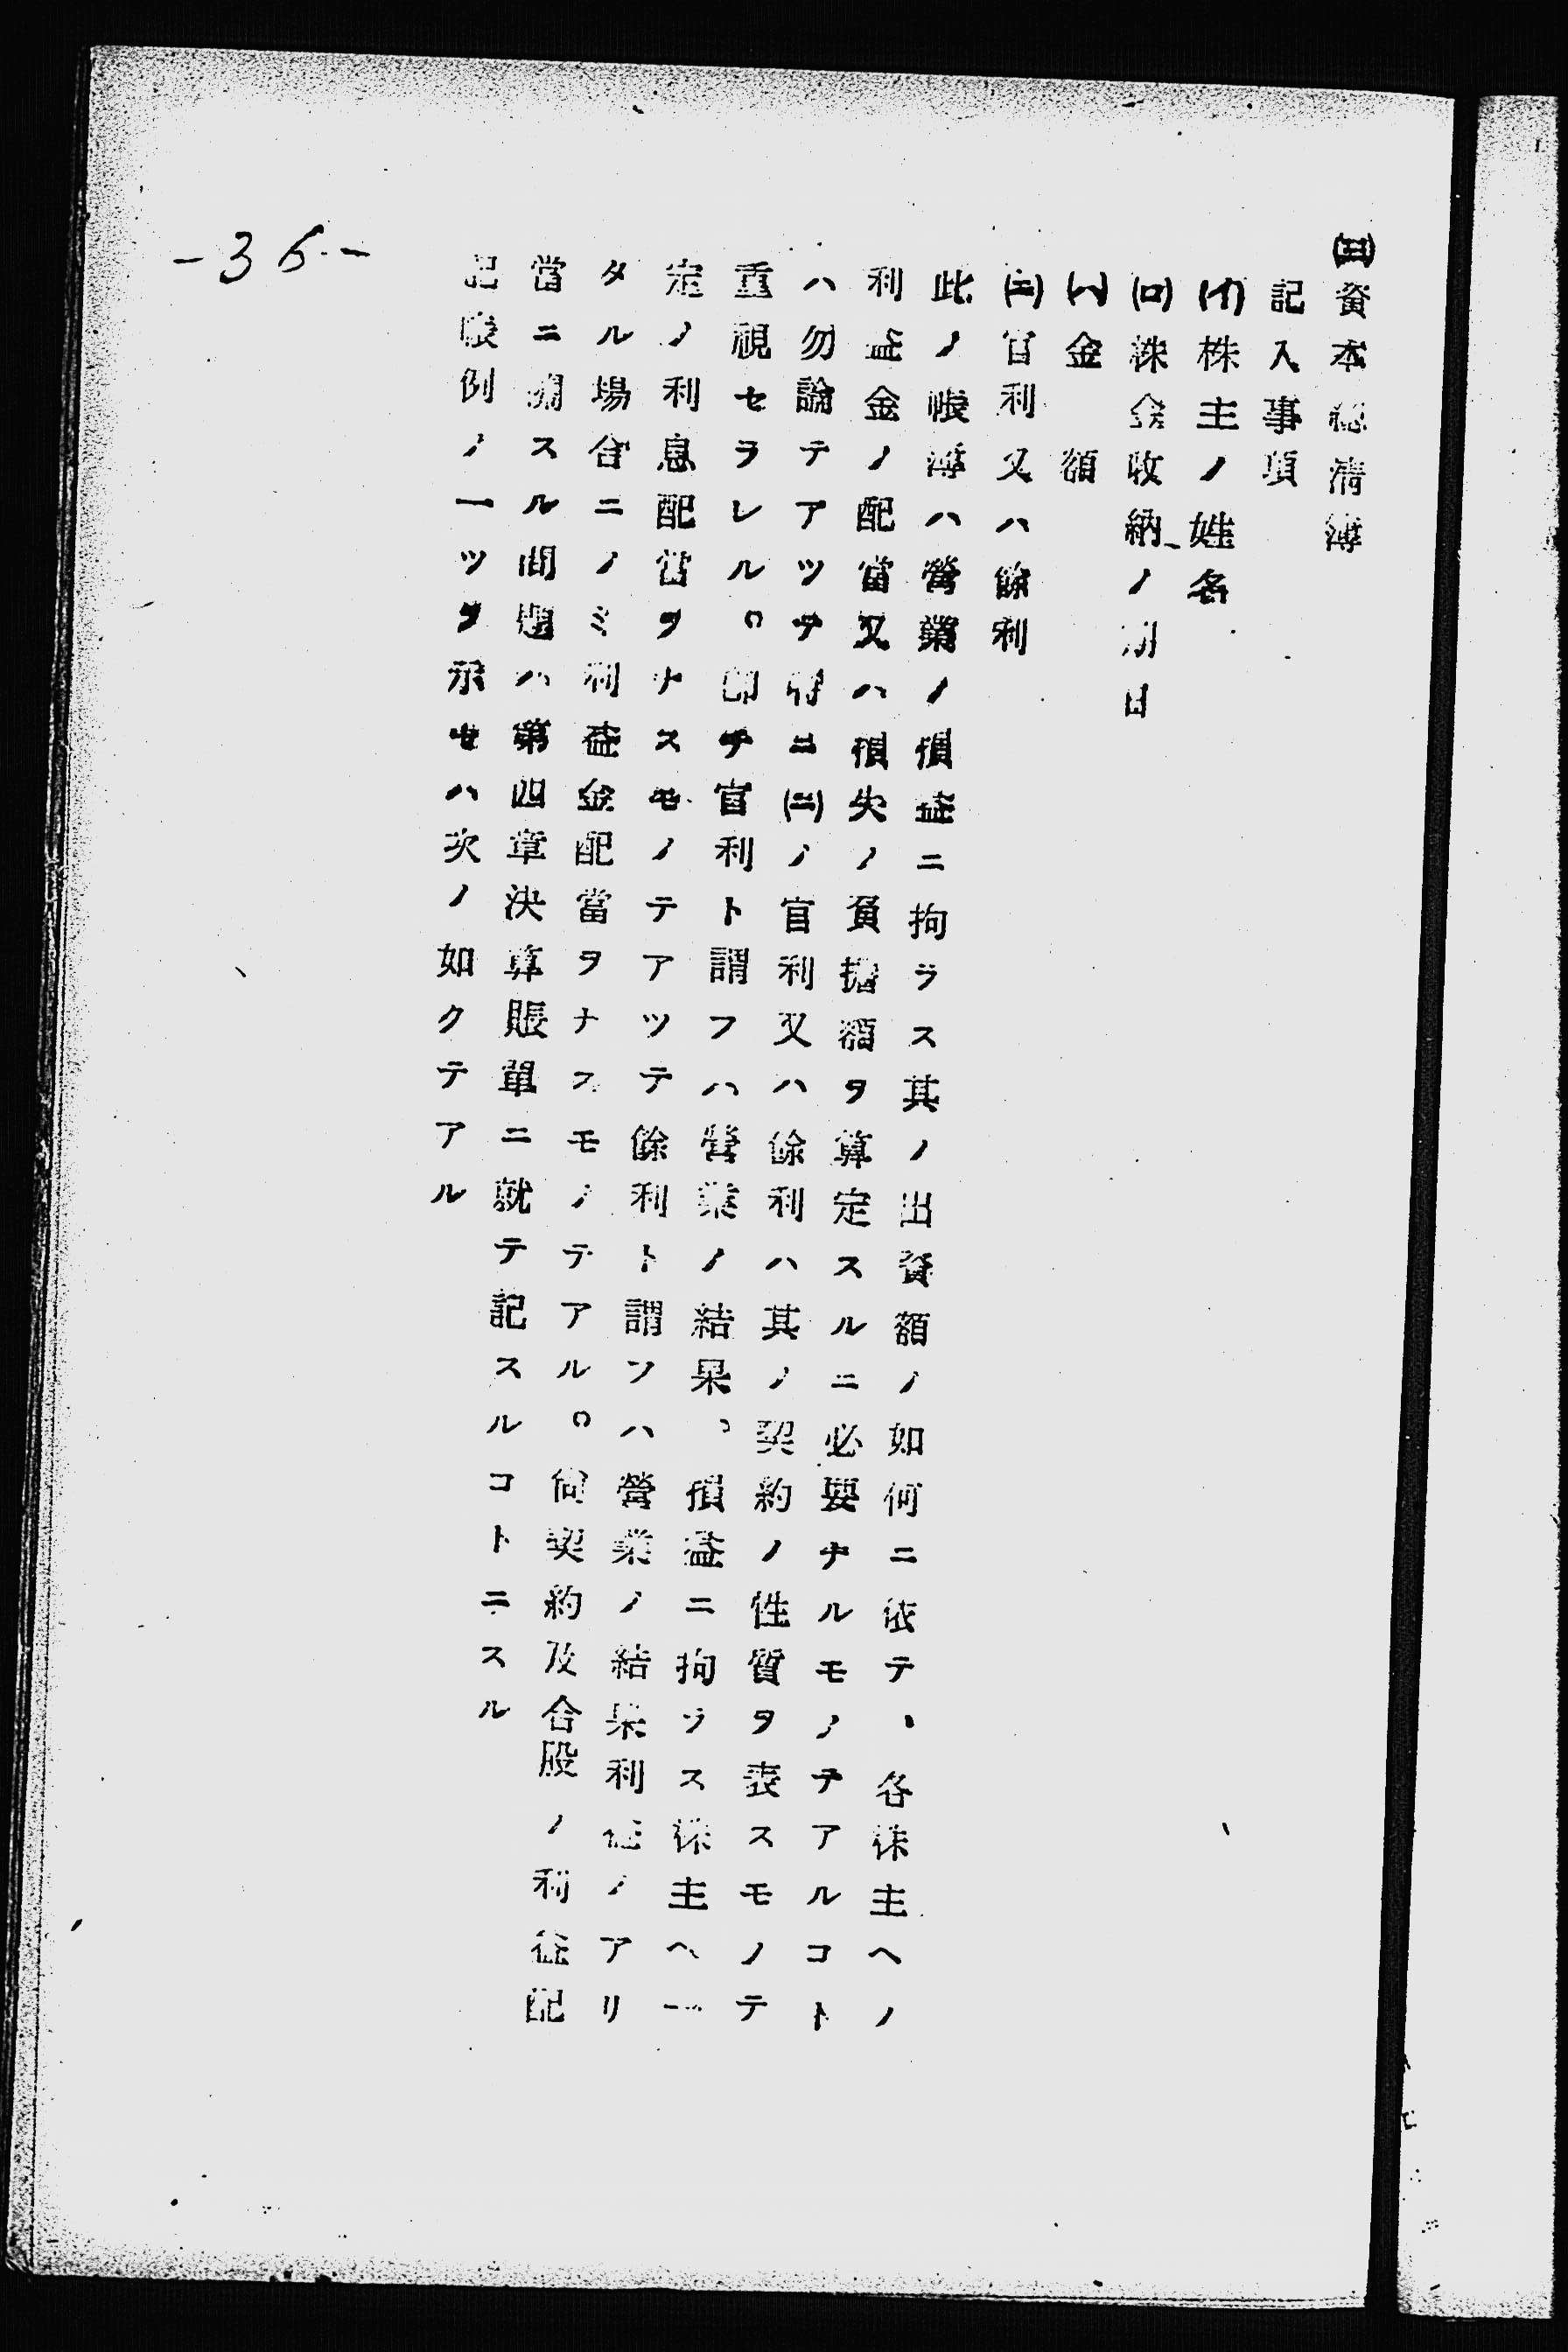 ㈢資本總淸簿
記入事項
(イ)株主ノ姓名
(ロ)株金收納ノ期日
(ハ)金額
(ニ)官利又ハ餘利
此ノ帳簿ハ營業ノ損益ニ拘ラス其ノ出資額ノ如何ニ依テ、各株主ヘノ
利益金ノ配當又ハ損失ノ負擔額ヲ算定スルニ必要ナルモノテアルコト
ハ勿論テアツテ特ニ(ニ)ノ官利又ハ餘利ハ其ノ契約ノ性質ヲ表スモノテ
重視セラレル。卽チ官利ト謂フハ營業ノ結果。損益ニ拘ラス株主ヘ一
定ノ利息配當ヲナスモノテアツテ餘利ト謂フハ營業ノ結果利益ノアリ
タル場合ニノミ利益金配當ヲナスモノテアル。尙契約及合股ノ利益配
當ニ關スル問題ハ第四章決算賬單ニ就テ記スルコトニスル
記帳例ノ一ツヲ示セハ次ノ如クテアル
-36-